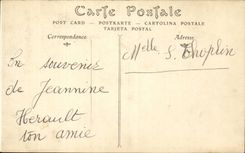 Carte Postale
POST CARD - POSTKARTE - CARTOLINA POSTALE
TARJETA POSTAL
Correspondance
Adresse
Melle S. Choplin
En souvenir
de Jeannine
Herault
ton amie